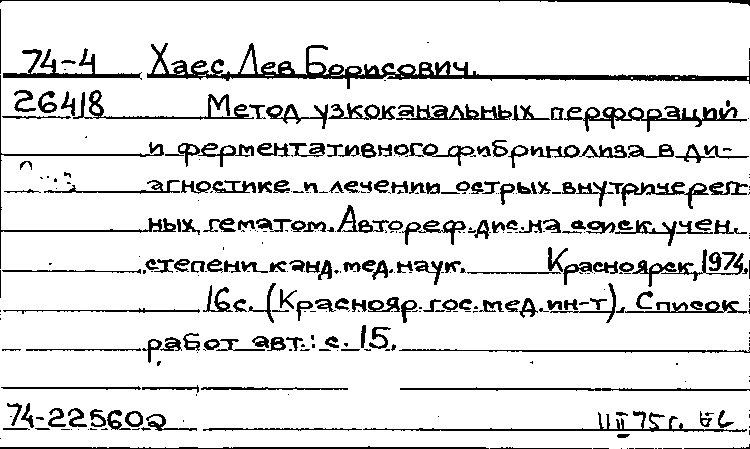 74-4 Хаес, Лев Борисович.
26418 Метод узкоканальных перфораций
и ферментативного фибринолиза в ди-
агностике и лечении острых внутричереп-
ных гематом. Автореф. дис. на соиск. учен.
степени канд. мед. наук. Красноярск, 1974.
16с. (Краснояр. гос. мед. ин-т). Список
работ авт.: с. 15.
74-22560 II II 75 г.